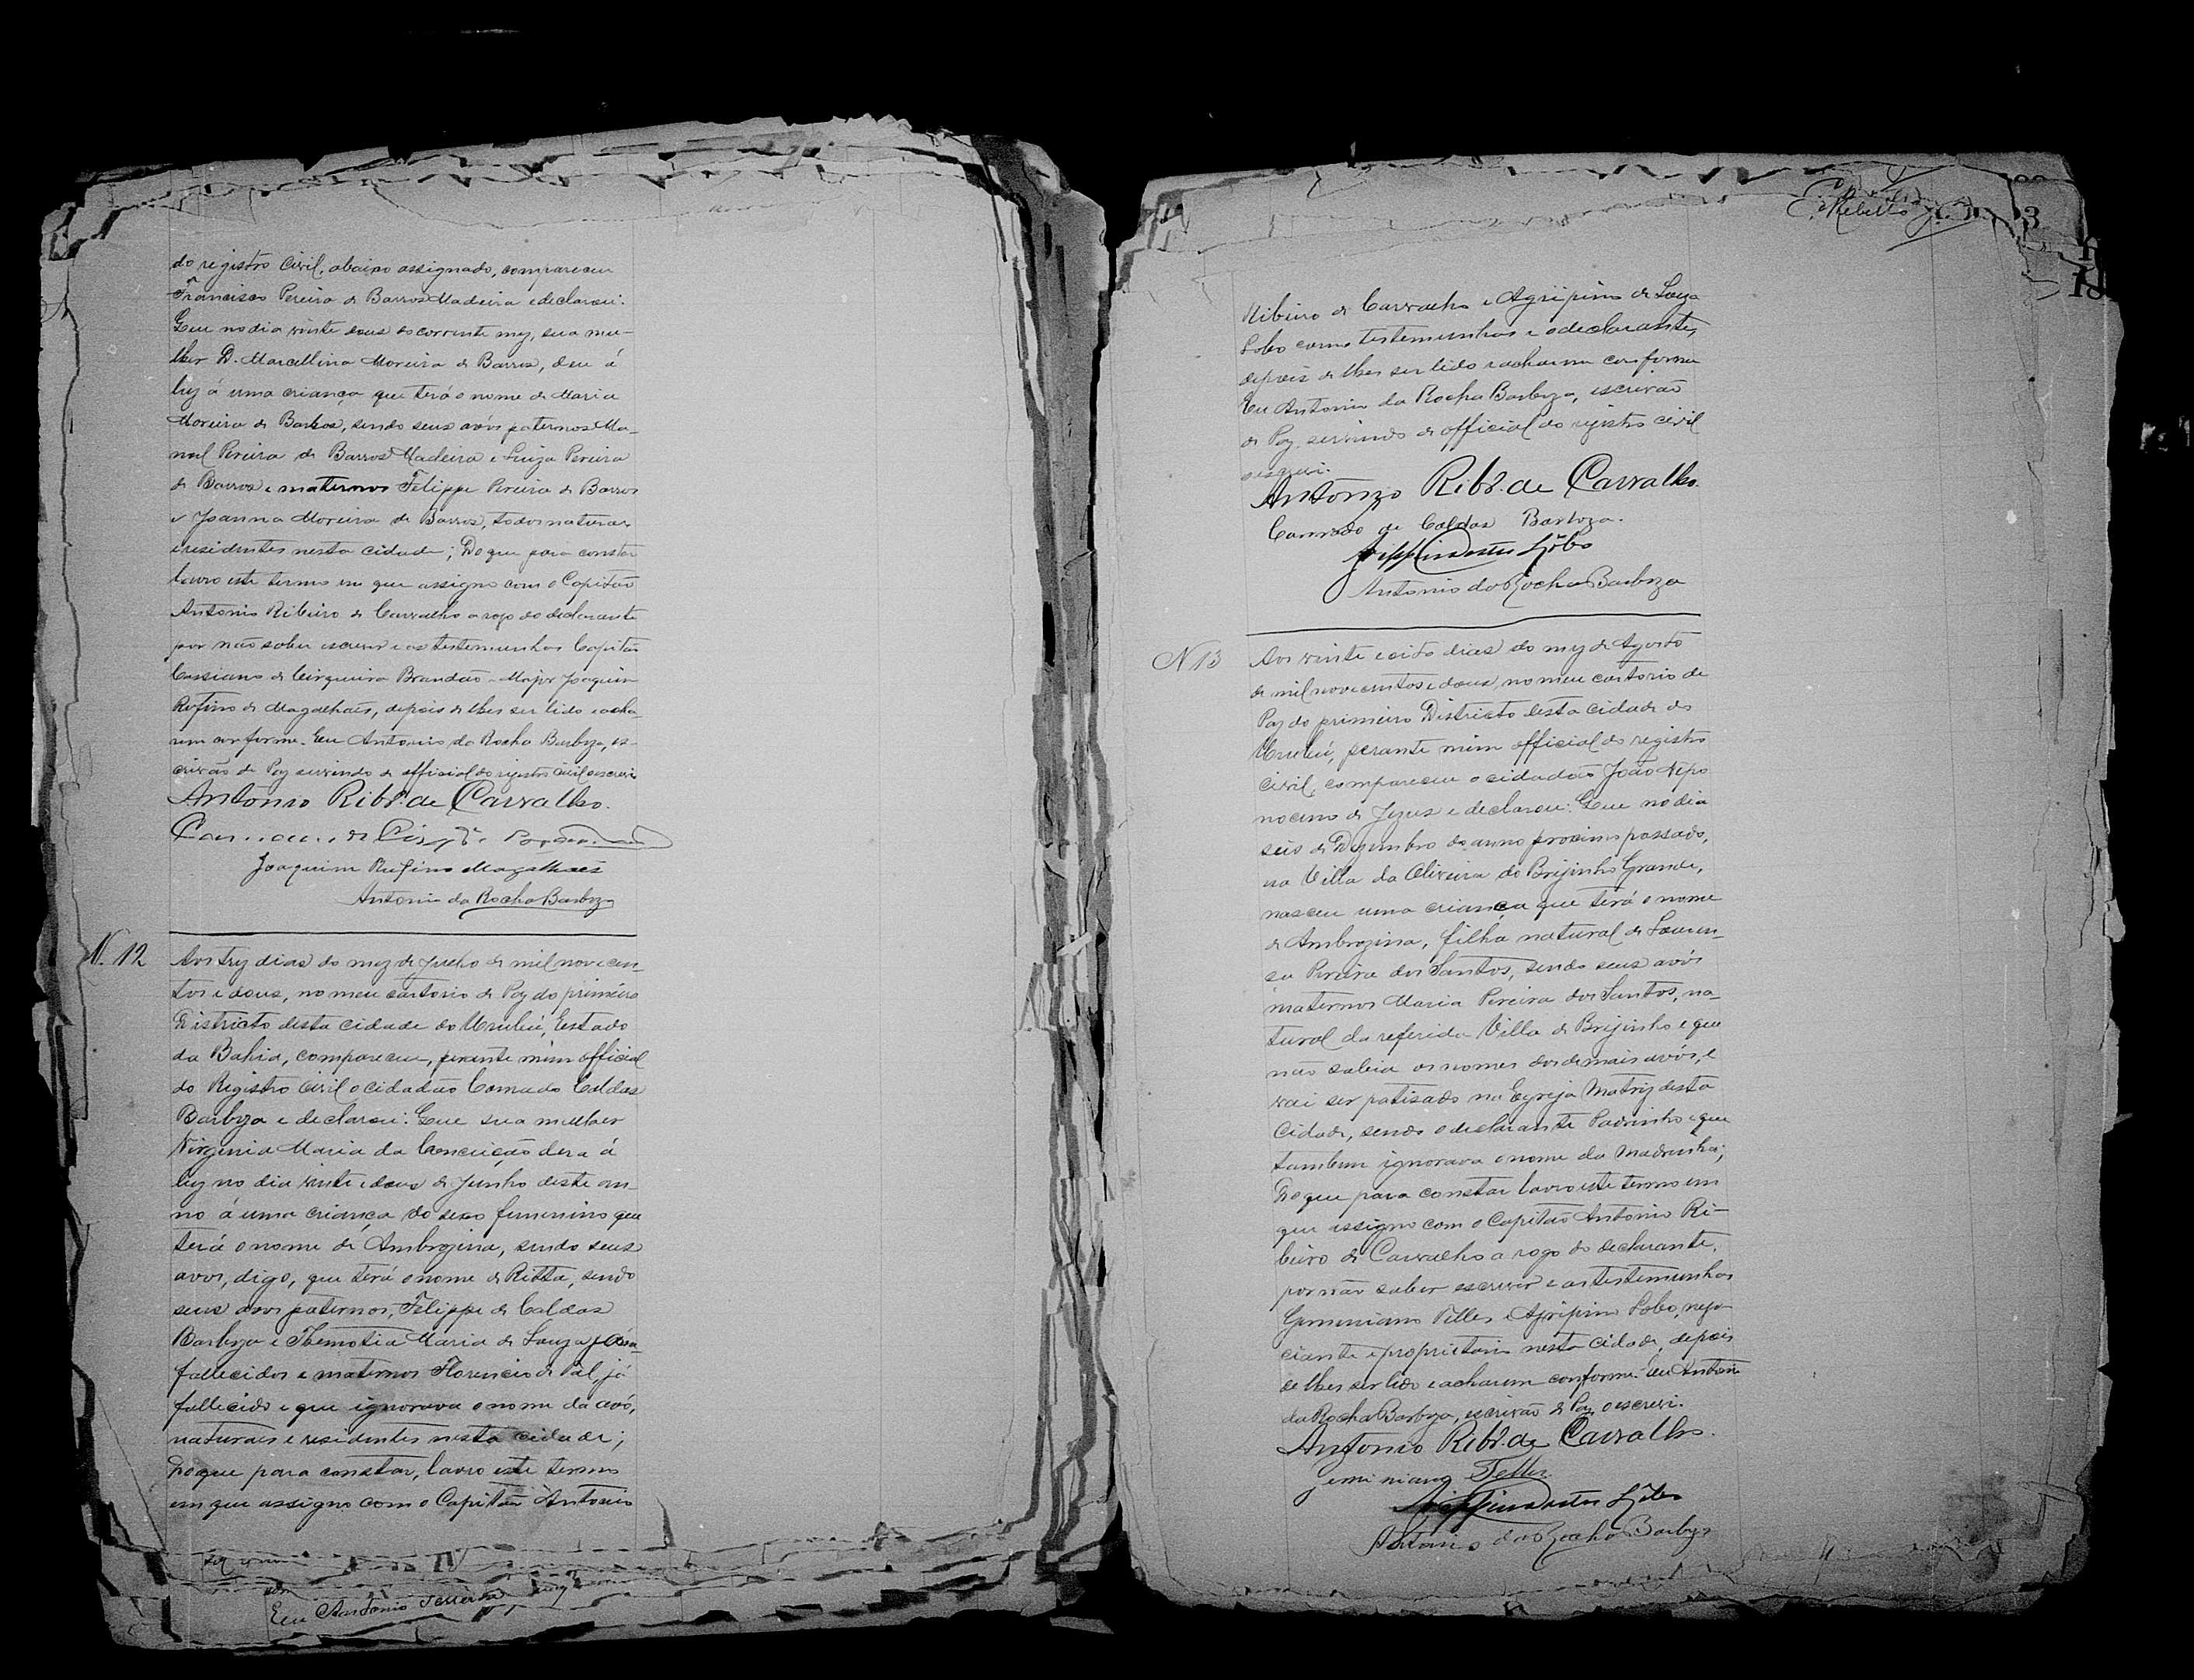 do registro Civil, abaixo assignado, compareceu
Francisco Pereira de Barros Madeira e declarou:
Que no dia vinte dous do corrente mez, sua mu-
lher D. Marcellina Moreira de Barros, deu á
luz á uma criança que terá o nome de Maria
Moreira de Barros, sendo seus avós paternos Ma-
noel Pereira de Barros Madeira e Luiza Pereira
de Barros e maternos Felippe Pereira de Barros
e Joanna Moreira de Barros, todos naturaes
e residentes nesta cidade; Do que para constar
lavro este termo em que assigno com o Capitão
Antonio Ribeiro de Carvalho a rogo do declarante
por não saber escrever e as testemunhas Capitão
Cassiano de Cirqueira Brandão e Major Joaquim
Rufino de Magalhaes, depois de lhes ser lido e acha-
rem conforme. Eu Antonio da Rocha Barboza, es-
crivão de Paz servindo de official do registro civil o escrevi
Antonio Ribr.º de Carvalho.
Joaquim Rufino Magalhaes
Antonio da Rocha Barboza
N. 12
Aos trez dias do mez de Julho de mil novecen-
tos e dous, no meu cartorio de Paz do primeiro
Districto desta cidade do Urubú, Estado
da Bahia, compareceu, perante mim official
do Registro Civil o cidadão Conrado Caldas
Barboza e declarou: Que sua mulher
Virginia Maria da Conceição dera á
luz no dia vinte e dous de Junho deste an-
no á uma criança do sexo femenino que
terá o nome de Ambrozina, sendo seus
avos, digo, que terá o nome de Ritta, sendo
seus avos paternos, Felippe de Caldas
Barboza e Themotia Maria de Souza já
fallecidos e maternos Florencio de Tal, já
fallecido e que ignorava o nome da avó,
naturaes e residentes nesta cidade;
Do que para constar, lavro este termo
em que assigno com o Capitão Antonio
Eu Antonio
E. Rebello
3
Ribeiro de Carvalho e Agripino de Souza
Lobo como testemunhas e o declarante,
depois de lhes ser lido e acharem conforme
Eu Antonio da Rocha Barboza, escrivão
de Paz servindo de official do registro civil
o escrevi.
Antonio Ribr.º de Carvalho.
Conrado de Caldas Barboza.
Antonio da Rocha Barboza
N 13
Aos vinte e oito dias do mez de Agosto
de mil novecentos e dous, no meu cartorio de
Paz do primeiro Districto desta cidade do
Urubú, perante mim official do registro
civil, compareceu o cidadão João Nepo
noceno de Jezus e declarou: Que no dia
seis de Dezembro do anno proximo passado,
na Villa da Oliveira do Brejinho Grande,
nasceu uma criança que terá o nome
de Ambrozina, filha natural de Louren-
ça Pereira dos Santos, sendo seus avós
maternos Maria Pereira dos Santos, na-
tural da referida Villa do Brejinho e que
não sabia os nomes dos demais avós, e
vai ser batisado na Egreja Matriz desta
Cidade, sendo o declarante Padrinho e que
tambem ignorava o nome da Madrinha;
Do que para constar lavro este termo em
que assigno com o Capitão Antonio Ri-
beiro de Carvalho a rogo do declarante,
por não saber escrever e as testemunhas
Geminiano Telles e Agripino Lobo, nego-
ciante e proprietario nesta cidade, depois
de lhes ser lido e acharem conforme. Eu Antonio
da Rocha Barboza, escrivão de Paz o escrevi.
Antonio Ribr.º de Carvalho.
Geminiano Telles
Antonio da Rocha Barboza